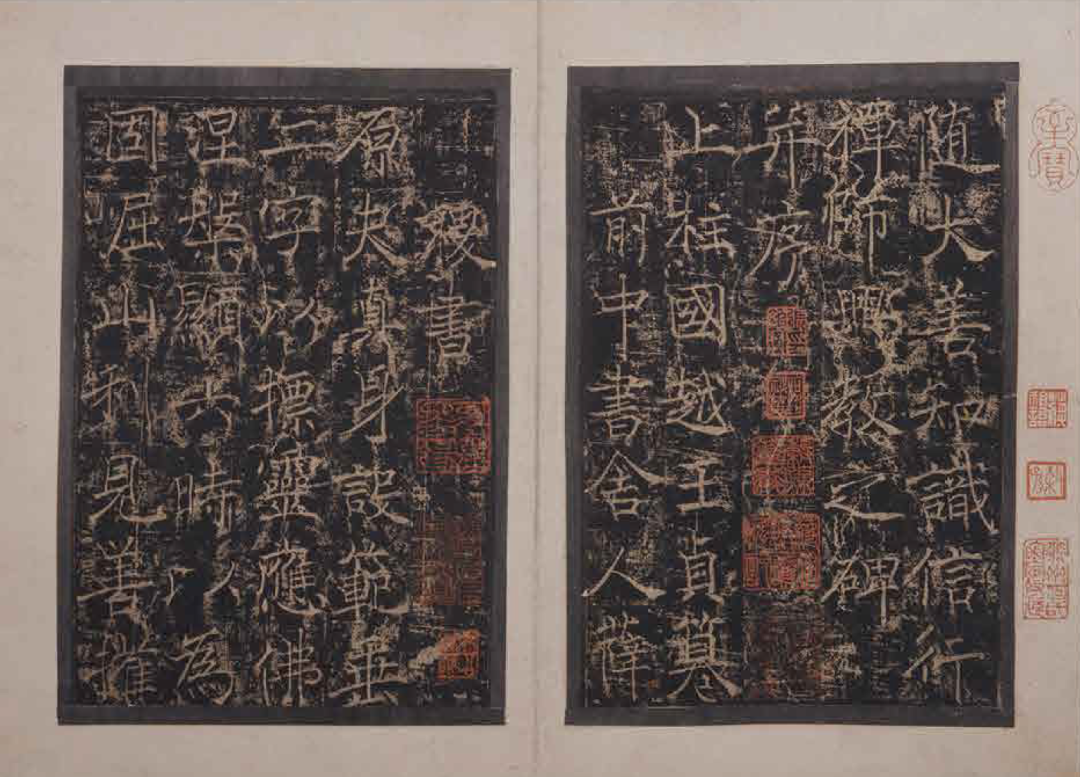 随大善知識信行
禪師興教之碑
并序
上柱國越王貞
前中書舍人薛
稷書
原夫真身設範垂
二字以標靈應佛
涅槃顯六時以為
固屈山利見善權